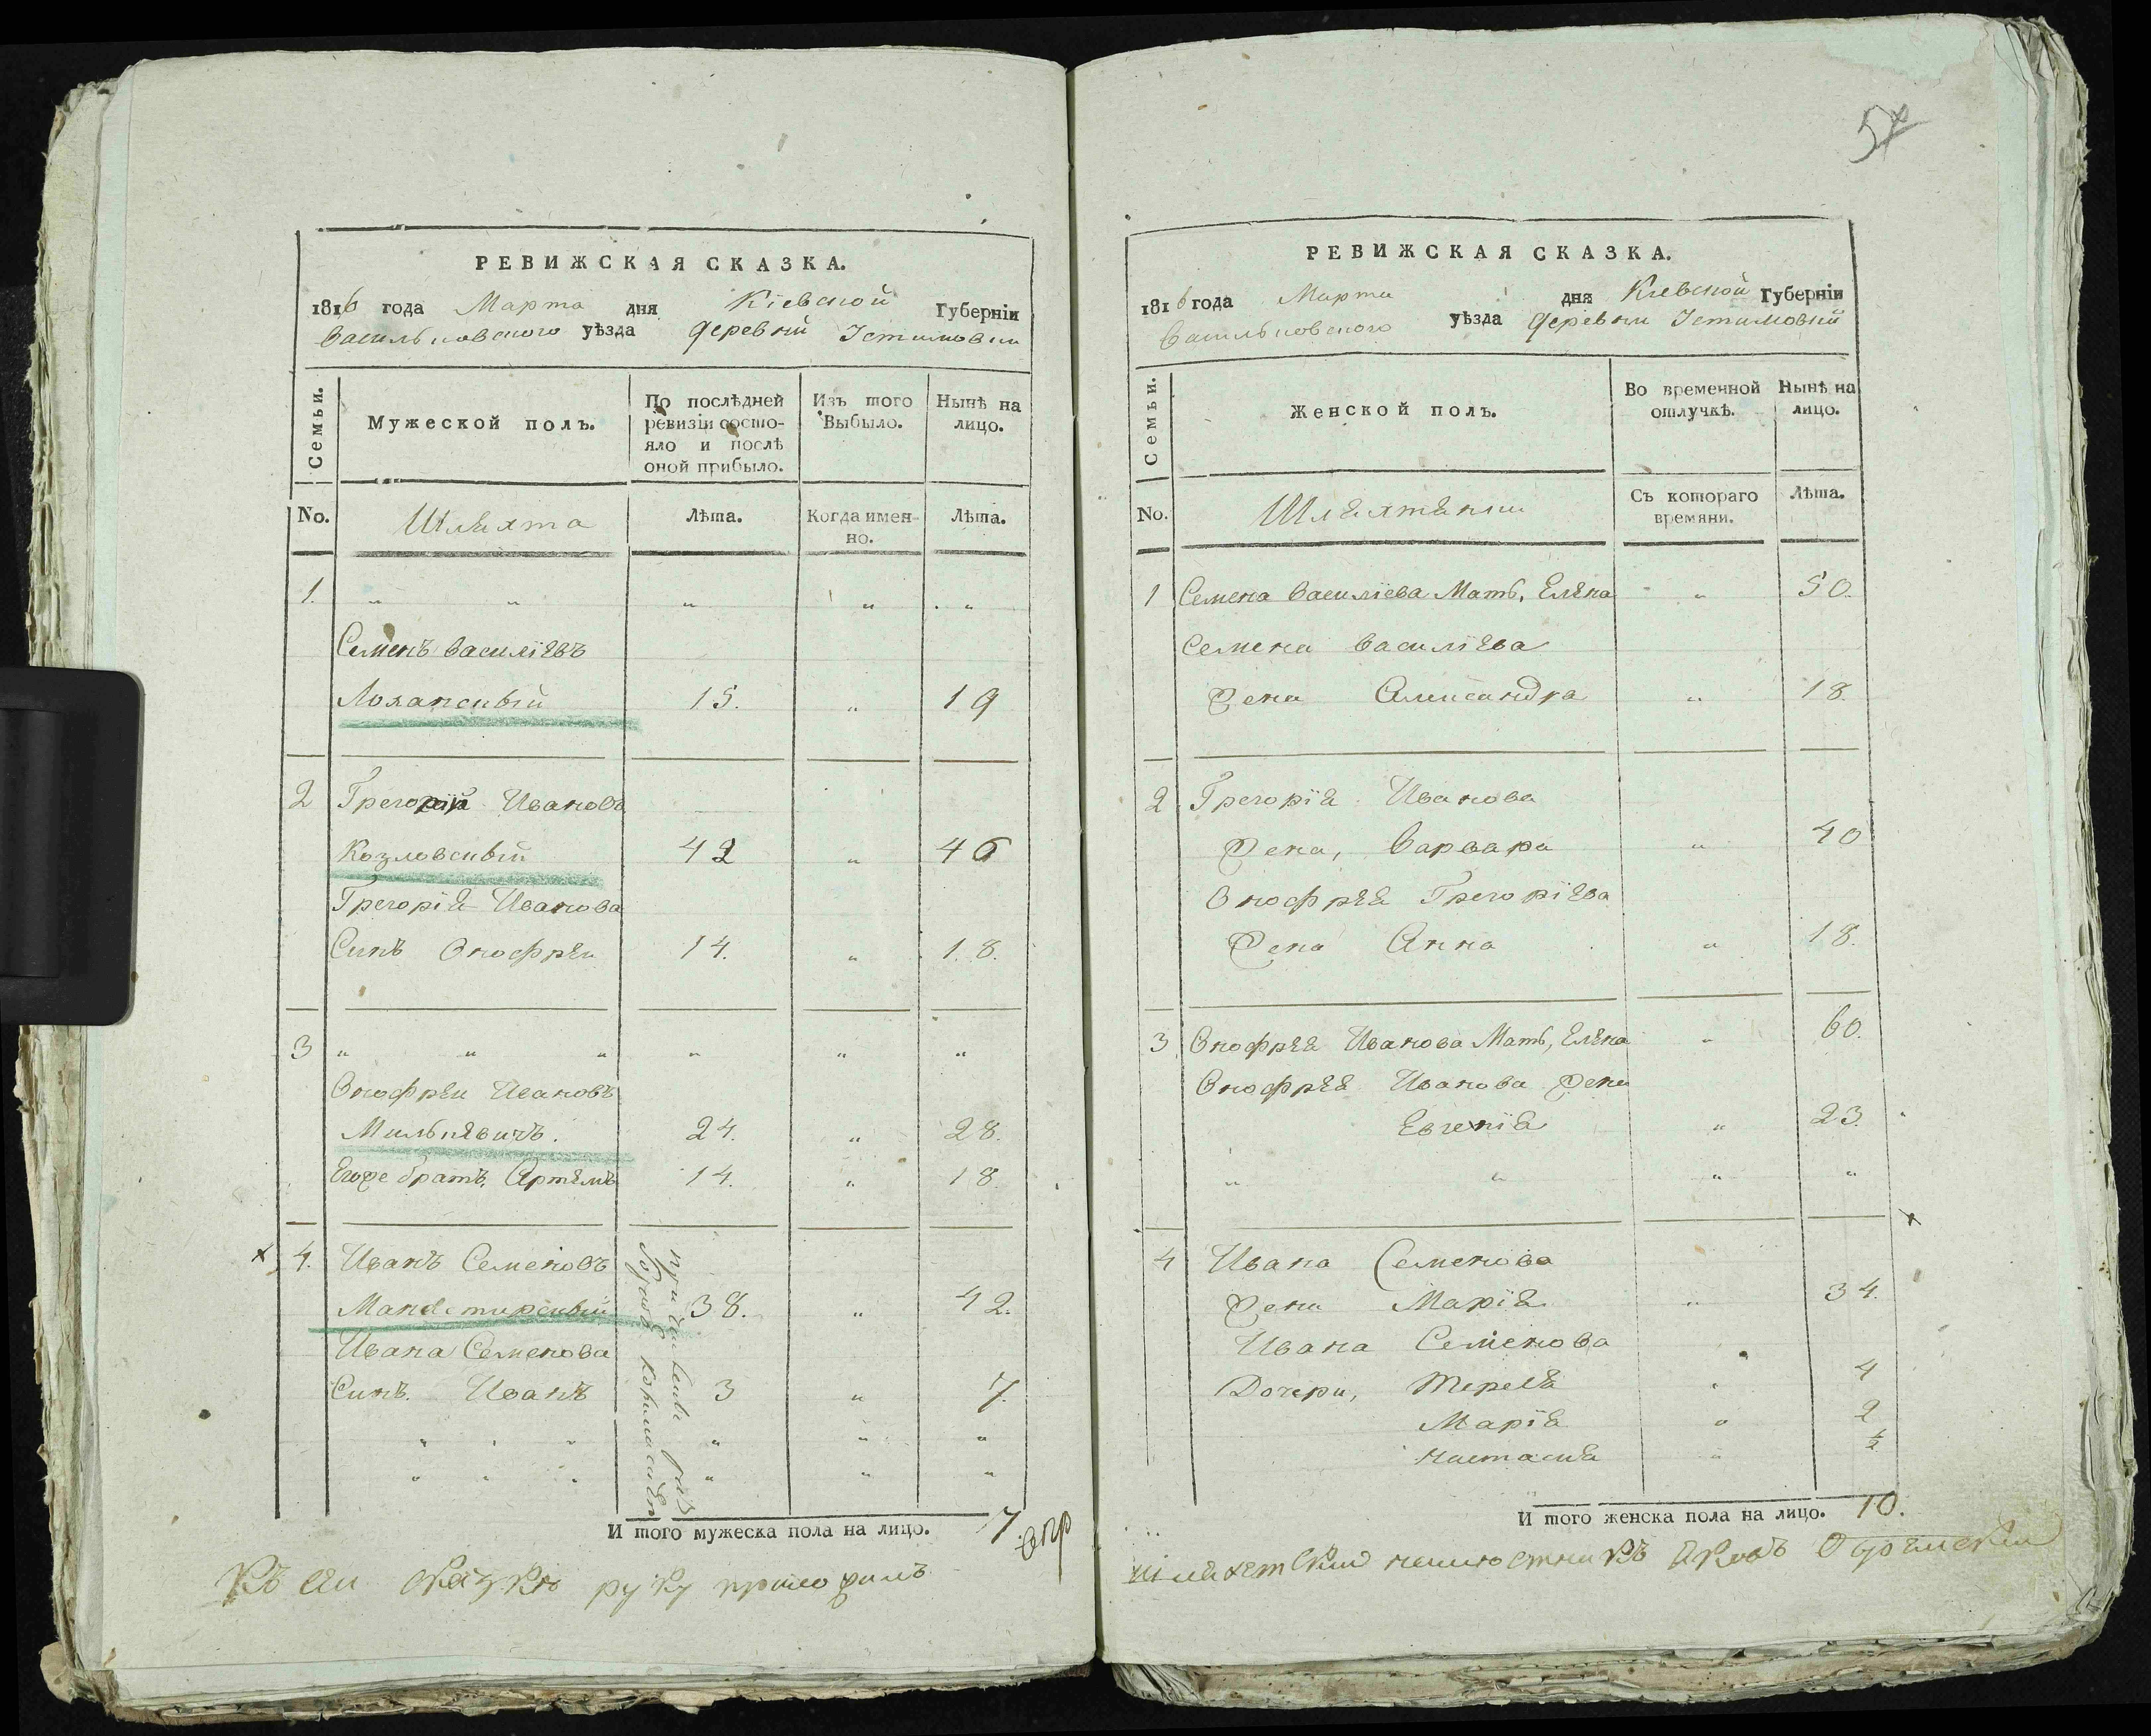 РЕВИЖСКАЯ СКАЗКА.
1816 года Марта дня Кіевской Губерніи
Васильковского уѣзда деревни Устимовки
Семьи.
Мужеской полъ.
По послѣдней ревизіи состо-
яло и послѣ
оной прибыло.
Изъ того
Выбыло.
Нынѣ на
лицо.
No.
Шляхта
Лѣта.
Когда имен-
но.
Лѣта.
1. " " " " "
Семенъ Василіевъ
15. " 19
2 Грегорій Ивановъ
Козловскій 42 " 46
Грегорія Иванова
Синъ Онофрей 14. " 18.
3 " " " " " "
Онофрей Ивановъ
Милькевичъ. 24. " 28.
Егоже братъ, Артемъ 14. " 18
4. Иванъ Семеновъ
38. " 42.
Ивана Семенова
Синъ. Иванъ 3 " 7.
" " " " " "
" " " " " "
И того мужеска пола на лицо. 7
Къ сей сказки руку приложилъ
57
РЕВИЖСКАЯ СКАЗКА.
1816 года Марта дня Кіевской Губерніи
Васильковского уѣзда деревни Устимовки
Семьи.
Женской полъ.
Во временной
отлучкѣ.
Нынѣ на
лицо.
No.
Шляхтянки
Съ котораго
времяни.
Лѣта.
1 Семена Василіева Мать, Елена " 50.
Семена Василіева
Жена Александра " 18.
2 Грегорія Иванова
Жена, Варвара " 40
Онофрея Грегоріева
Жена Анна " 18.
3 Онофрея Иванова Мать, Елена " 60.
Онофрея Иванова Жена
Евгенія " 23.
" " " "
4 Ивана Семенова
Жена Марія " 34.
Ивана Семенова
Дочери, Терезя " 4
Марія " 2
Настасия " ½
И того женска пола на лицо. 10.